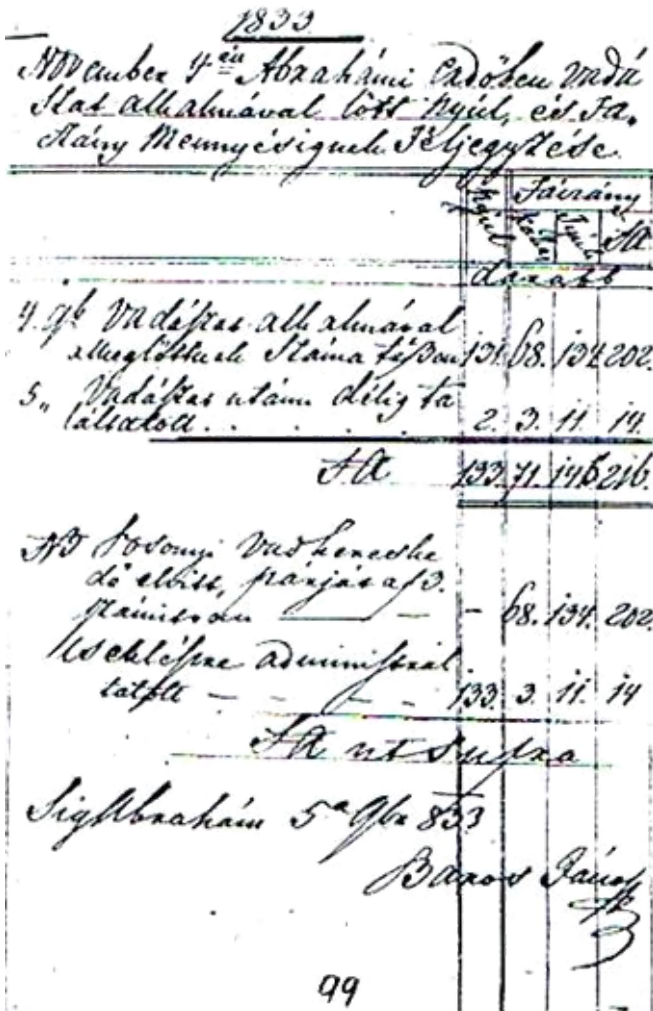 1833
November 4én Abrahámi erdőben vadá
szat alkalmával lőtt Nyúl, és Fá,
tzány Mennyiségnek Feljegyzése.
Nyúl Fátzány
kakas Tyúk Sa
darabb
4. 9b Vadászat alkalmával
Meglőttek Száma 131. 68. 134. 202.
5. Vadászat után délig ta
láltatott . . . . 2. 3. 11. 14.
Sa 133. 71. 145 216.
NB Posonyi Vad kereske
dő elvitt,
számoson — - 68. 134. 202.
Cseklészre administrál
tatott — — — 133. 3. 11. 14
Sa ut Supra
Sig Abrahám 5a 9br 833
Baros János
99